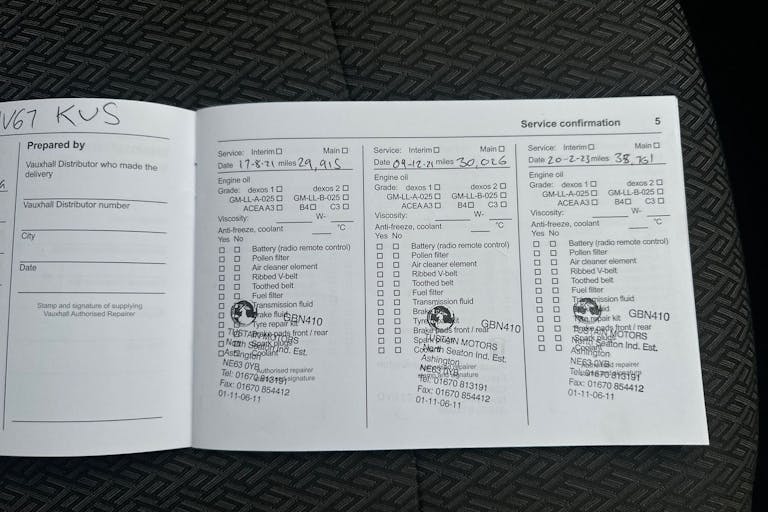 V67 KUS
Prepared by
Vauxhall Distributor who made the
delivery
Vauxhall Distributor number
City
Date
Stamp and signature of supplying
Vauxhall Authorised Repairer
Service confirmation 5
Service: Interim Main
Date 17-8-21 miles 29,915
Engine oil
Grade: dexos 1 dexos 2
GM-LL-A-025 GM-LL-B-025
ACEA A3 B4 C3
Viscosity: W-
Anti-freeze, coolant °C
Yes No
Battery (radio remote control)
Pollen filter
Air cleaner element
Ribbed V-belt
Toothed belt
Fuel filter
Transmission fluid
Brake fluid
GBN410
Tyre repair kit
Brake pads front / rear
Spark plugs
Coolant
MOTORS
Ind. Est.
NE63 0YB
Authorised repairer
Tel: 01670 813191
Fax: 01670 854412
01-11-06-11
Service: Interim Main
Date 09-12-21 miles 30,026
Engine oil
Grade: dexos 1 dexos 2
GM-LL-A-025 GM-LL-B-025
ACEA A3 B4 C3
Viscosity: W-
Anti-freeze, coolant °C
Yes No
Battery (radio remote control)
Pollen filter
Air cleaner element
Ribbed V-belt
Toothed belt
Fuel filter
Transmission fluid
GBN410
Brake pads front / rear
MOTORS
Seaton Ind. Est.
Ashington
NE63 0YB
Tel: 01670 813191
Fax: 01670 854412
01-11-06-11
Service: Interim Main
Date 20-2-23 miles 38,761
Engine oil
Grade: dexos 1 dexos 2
GM-LL-A-025 GM-LL-B-025
ACEA A3 B4 C3
Viscosity: W-
Anti-freeze, coolant °C
Yes No
Battery (radio remote control)
Pollen filter
Air cleaner element
Ribbed V-belt
Toothed belt
Fuel filter
Transmission fluid
GBN410
Brake pads front / rear
MOTORS
Seaton Ind. Est.
Ashington
NE63 0YB
Tel: 01670 813191
Fax: 01670 854412
01-11-06-11